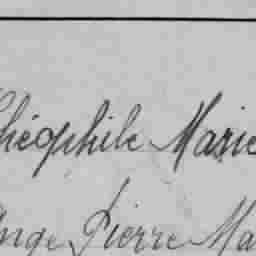 Théophile Marie
Ange Pierre Ma